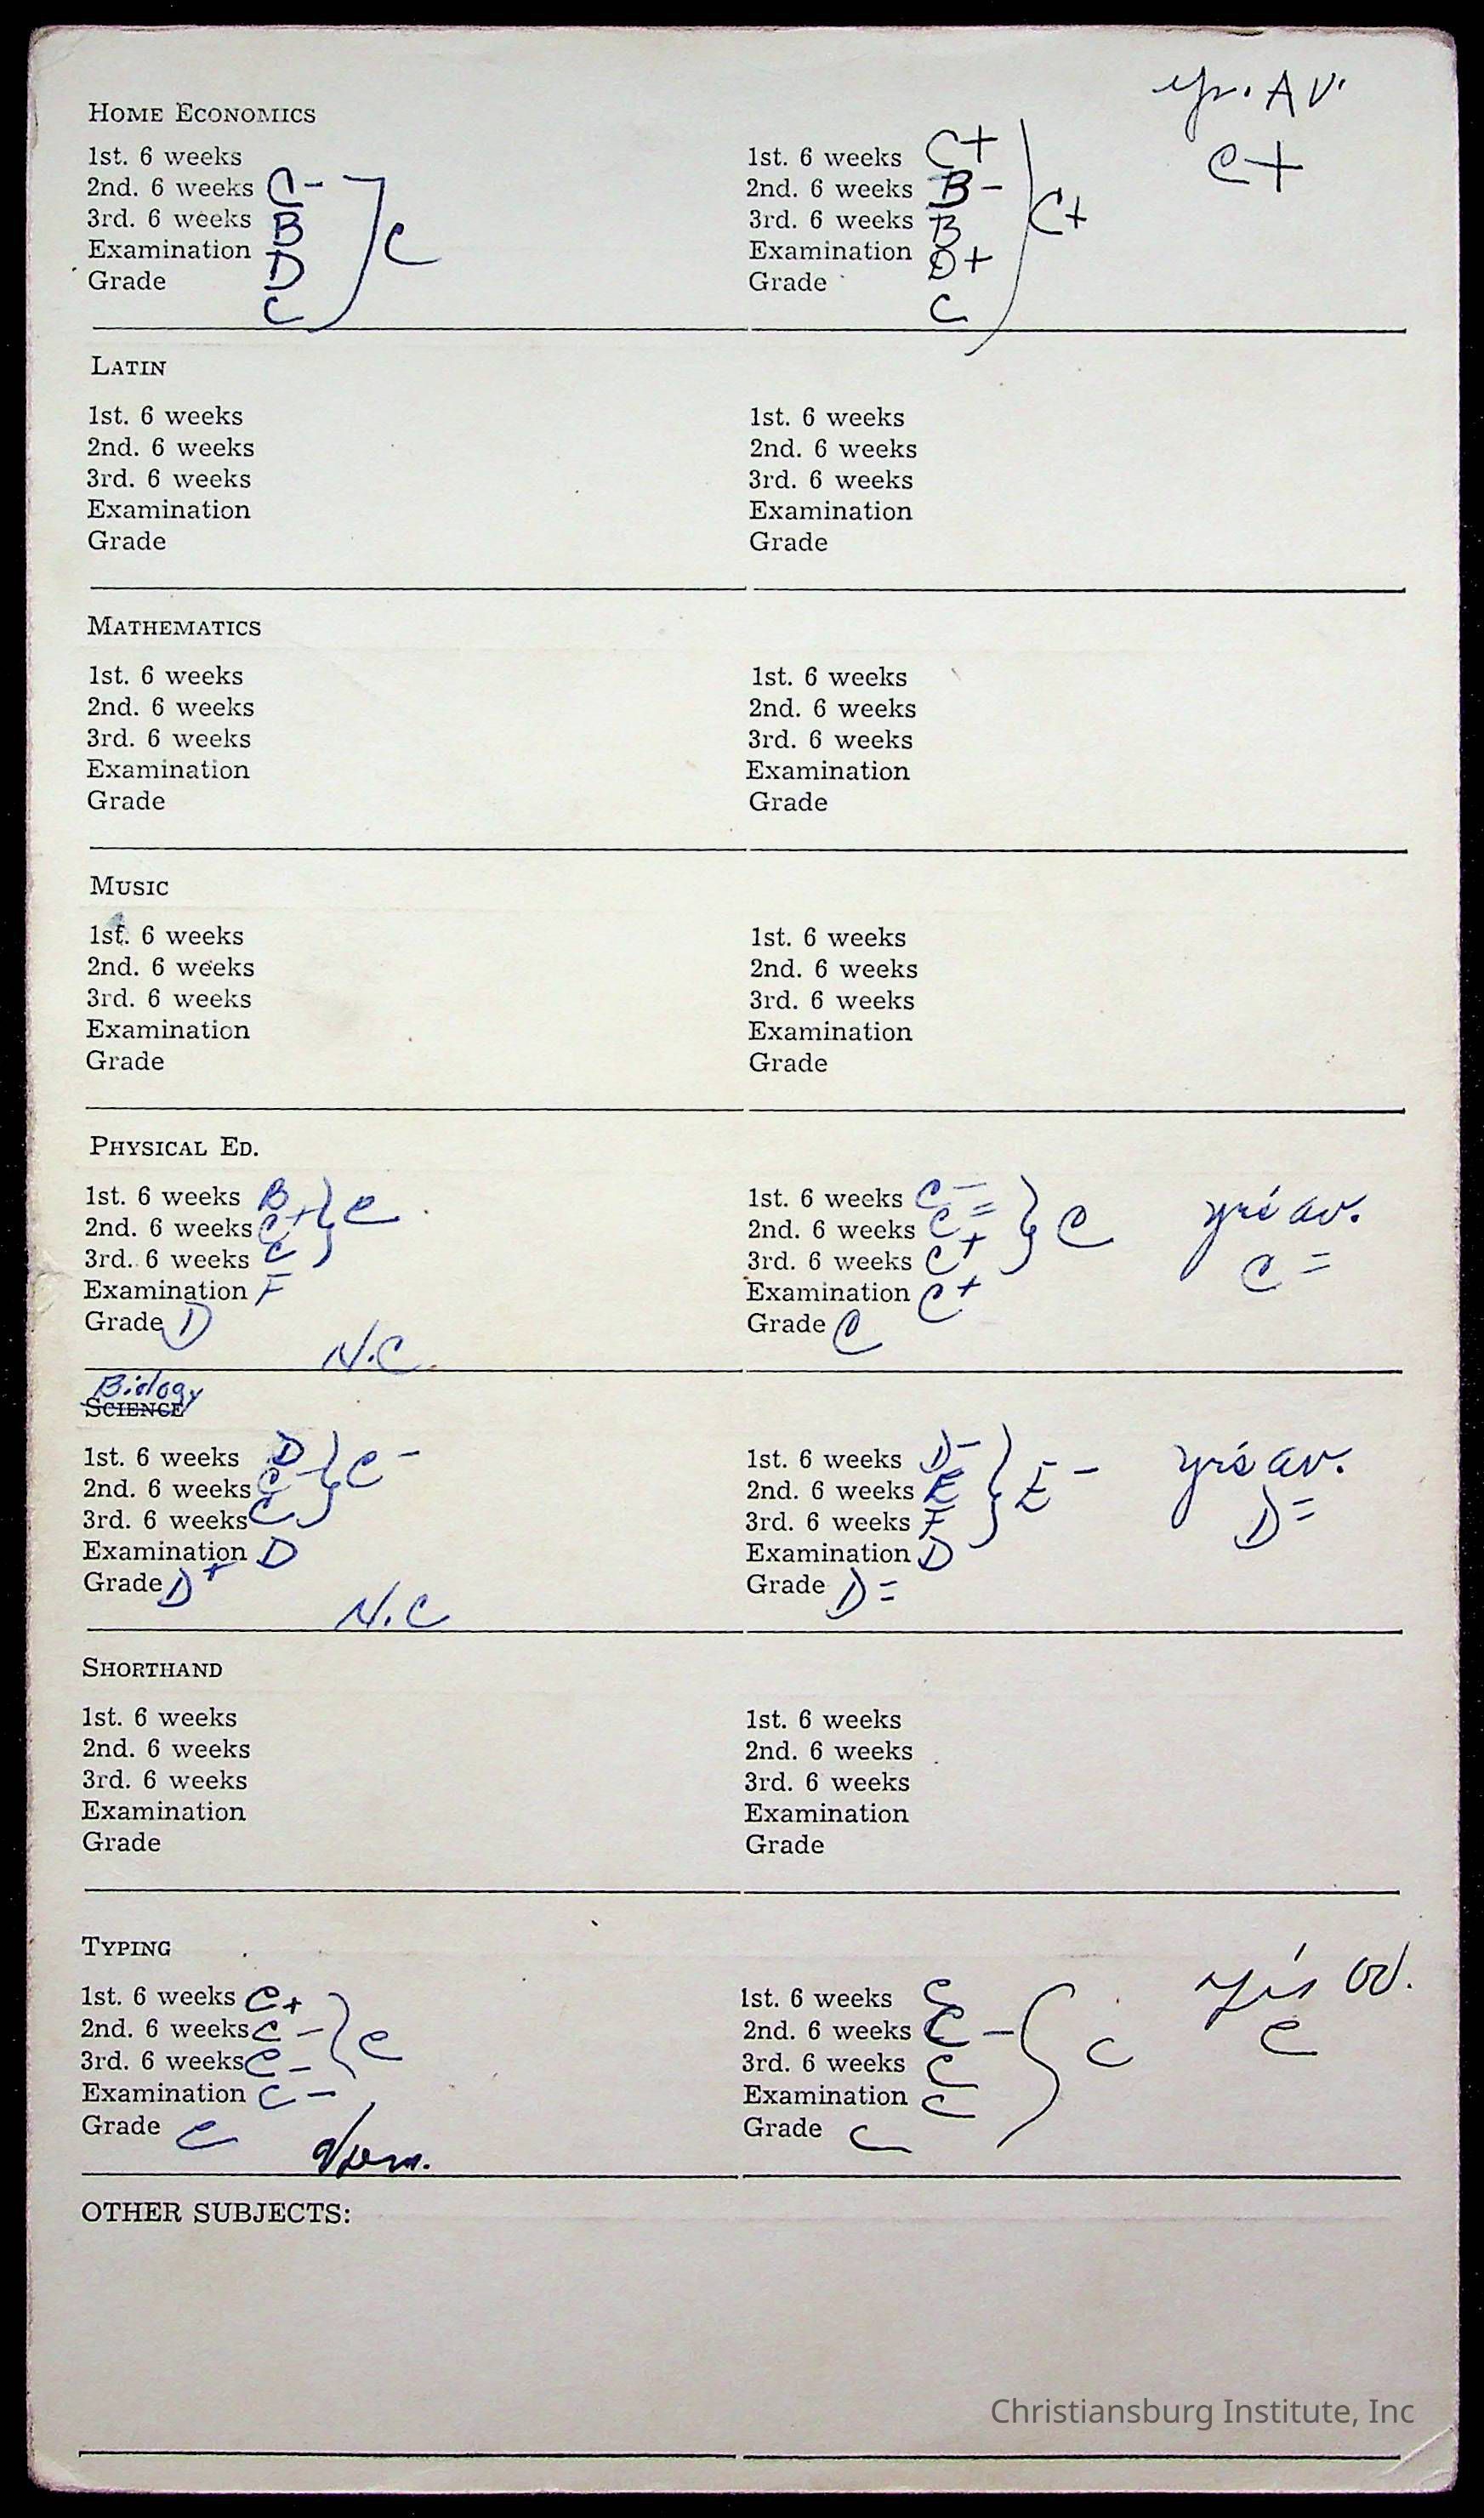 yr. AV.
C+
HOME ECONOMICS
1st. 6 weeks
2nd. 6 weeks C-
3rd. 6 weeks B
Examination D
Grade C
C
1st. 6 weeks C+
2nd. 6 weeks B-
3rd. 6 weeks B
Examination D+
Grade C
C+
LATIN
1st. 6 weeks
2nd. 6 weeks
3rd. 6 weeks
Examination
Grade
1st. 6 weeks
2nd. 6 weeks
3rd. 6 weeks
Examination
Grade
MATHEMATICS
1st. 6 weeks
2nd. 6 weeks
3rd. 6 weeks
Examination
Grade
1st. 6 weeks
2nd. 6 weeks
3rd. 6 weeks
Examination
Grade
MUSIC
1st. 6 weeks
2nd. 6 weeks
3rd. 6 weeks
Examination
Grade
1st. 6 weeks
2nd. 6 weeks
3rd. 6 weeks
Examination
Grade
PHYSICAL ED.
1st. 6 weeks B
2nd. 6 weeks C+
3rd. 6 weeks C
Examination F
Grade D
C
N.C.
1st. 6 weeks C-
2nd. 6 weeks C=
3rd. 6 weeks C+
Examination C+
Grade C
C
yr's av.
C=
Biology
SCIENCE
1st. 6 weeks D
2nd. 6 weeks C-
3rd. 6 weeks C
Examination D
Grade D+
C-
N.C
1st. 6 weeks D-
2nd. 6 weeks E
3rd. 6 weeks F
Examination D
Grade D=
E-
yr's av.
D=
SHORTHAND
1st. 6 weeks
2nd. 6 weeks
3rd. 6 weeks
Examination
Grade
1st. 6 weeks
2nd. 6 weeks
3rd. 6 weeks
Examination
Grade
TYPING
1st. 6 weeks C+
2nd. 6 weeks C-
3rd. 6 weeks C-
Examination C-
Grade C
C
1st. 6 weeks C
2nd. 6 weeks C-
3rd. 6 weeks C
Examination C
Grade C
C
yr's av.
C
OTHER SUBJECTS:
Christiansburg Institute, Inc